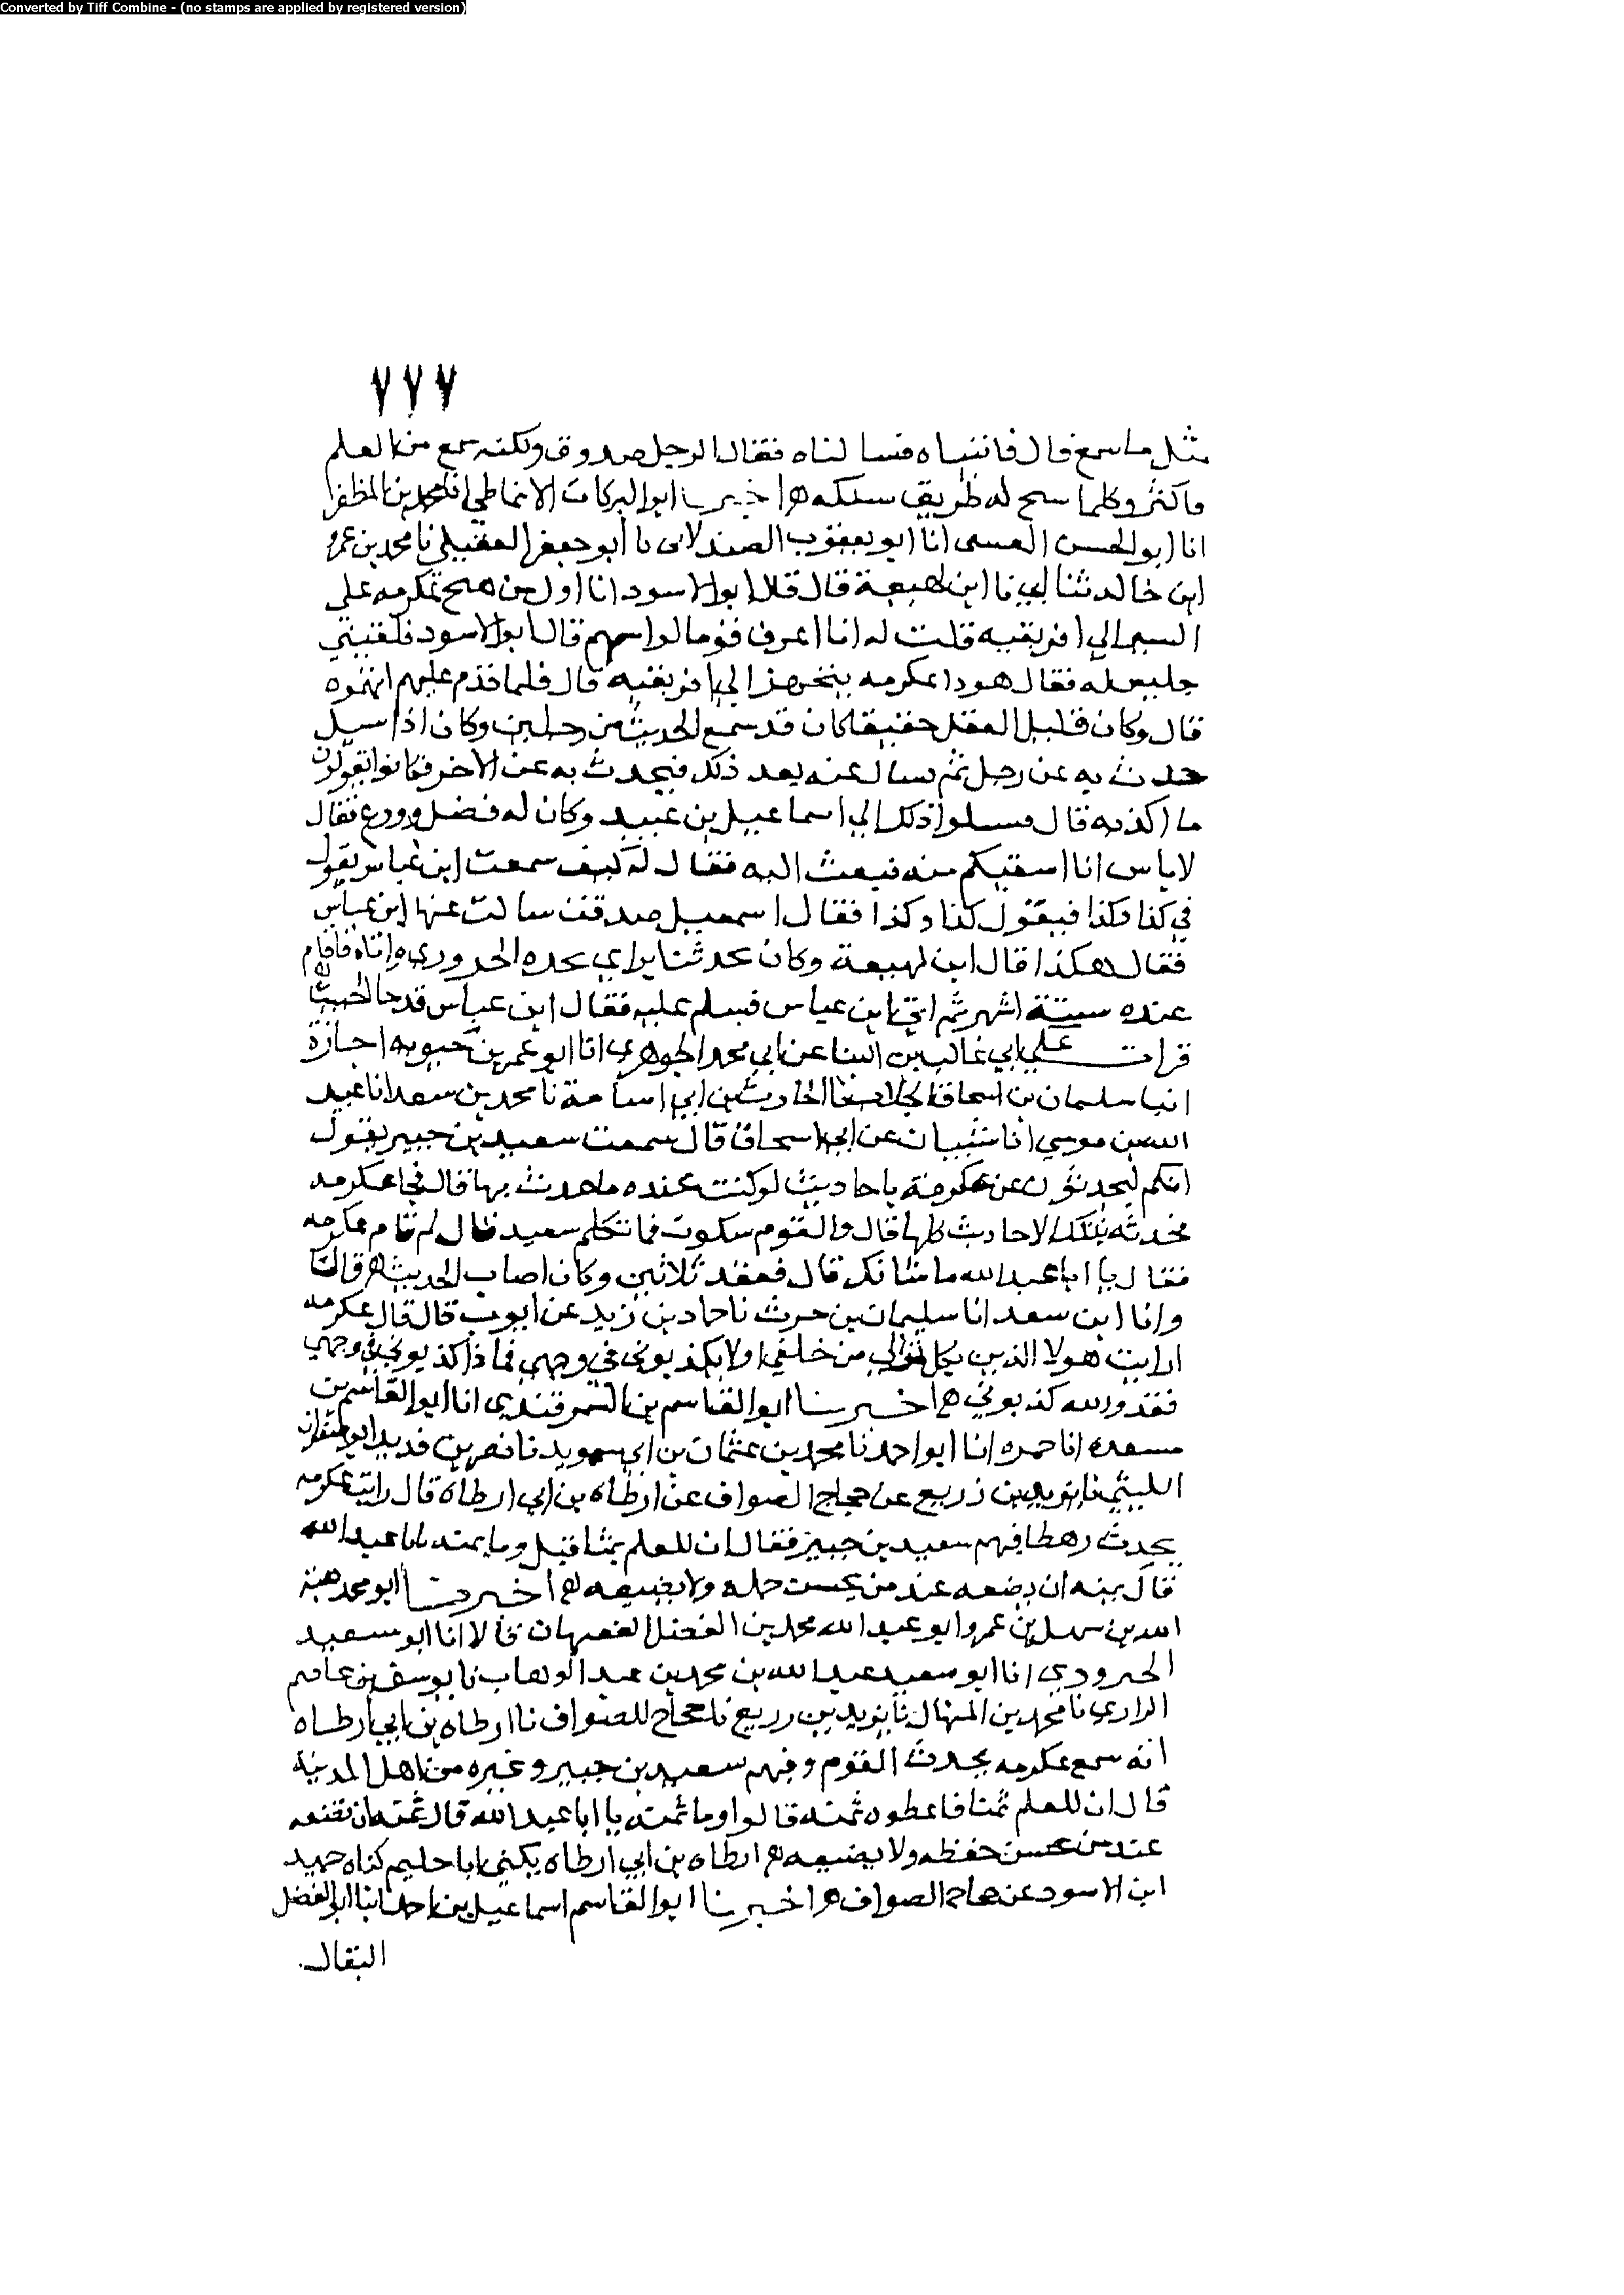 Converted by Tiff Combine - (no stamps are applied by registered version)
٧٧٧
مثل ما سمع قال فاتيناه فسالناه فقال الرجل صدوق ولكنه سمع من العلم
فاكثر وكلما سنح له طريق سلكه اخبرنا ابو البركات الانماطي انا محمد بن المظفر
انا ابو الحسن العتيقي انا ابو يعقوب الصيدلاني نا ابو جعفر العقيلي نا محمد بن عمرو
ابن خالد ثنا ابي نا ابن لهيعة قال قال ابو الاسود انا اول من هيج عكرمه على
السير الي افريقيه قلت له انا اعرف قوما لو اتيتهم قال ابو الاسود فلقيني
جليس له فقال هوذا عكرمه يتجهز الي افريقيه قال فلما قدم عليهم اتهموه
قال وكان قليل العقل خفيفا كان قد سمع الحديث من رجلين وكان اذا سيل
حدث به عن رجل ثم يسال عنه بعد ذلك فيحدث به عن الاخر فكانوا يقولون
ما اكذبه قال فسلوا ذلك الي اسماعيل بن عبيد وكان له فضل وورع فقال
لا باس انا اسقيكم منه فبعث اليه فقال له كيف سمعت ابن عباس يقول
في كذا وكذا فيقول كذا وكذا فقال اسمعيل صدقت سالت عنها ابن عباس
فقال هكذا قال ابن لهيعة وكان يحدث براي نجده الحروري واتاه فاقام
عنده ستة اشهر ثم اتي ابن عباس فسلم عليه فقال ابن عباس قد جا الخبيث
قرات على ابي غالب بن البنا عن ابي محمد الجوهري انا ابو عمر بن حيويه اجازة
انبا سليمان بن اسحاق الجلاب نا الحارث بن ابي اسامة نا محمد بن سعد انا عبيد
الله بن موسي انا شيبان عن ابي اسحاق قال سمعت سعيد بن جبير يقول
انكم لتحدثون عن عكرمة باحاديث لو كنت عنده ما حدث بها قال فجا عكرمه
فحدثه بتلك الاحاديث كلها قال والقوم سكوت فما تكلم سعيد قال ثم قام عكرمه
فقال يا ابا عبد الله ما شانك قال فعقد ثلاثين وكان اصاب الحديث قال
وانا ابن سعد انا سليمان بن حرب نا حماد بن زيد عن ايوب قال قال عكرمه
ارايت هولا الذين يكذبوني من خلفي اولا يكذبوني في وجهي فاذا كذبوني في وجهي
فقد والله كذبوني اخبرنا ابو القاسم بن السمرقندي انا ابو القاسم بن
مسعده انا حمزه انا ابو احمد نا محمد بن عثمان بن ابي سويد نا نصر بن قديد ابو صفوان
الليثي نا يزيد بن زريع عن حجاج الصواف عن ارطاه بن ابي ارطاه قال رايت عكرمه
يحدث رهطا فيهم سعيد بن جبير فقال ان للعلم ثمنا قيل وما ثمنه يا ابا عبد الله
قال ثمنه ان يضعه عند من يحسن حمله ولا يضيعه اخبرنا ابو محمد هبة
الله بن سهل بن عمر وابو عبد الله محمد بن الفضل الفقيهان قالا انا ابو سعيد
انا ابو سعيد عبد الله بن محمد بن عبد الوهاب نا يوسف بن عاصم
الرازي نا محمد بن المنهال نا يزيد بن زريع نا حجاج الصواف نا ارطاه بن ابي ارطاه
انه سمع عكرمه يحدث القوم وفيهم سعيد بن جبير وغيره من اهل المدينة
قال ان للعلم ثمنا فاعطوه ثمنه قالوا وما ثمنه يا ابا عبد الله قال ثمنه ان تضعه
عند من يحسن حفظه ولا يضيعه ارطاه بن ابي ارطاه يكني ابا حليم كناه حميد
ابن الاسود عن حجاج الصواف اخبرنا ابو القاسم اسماعيل بن احمد انبا ابو الفضل
البقال